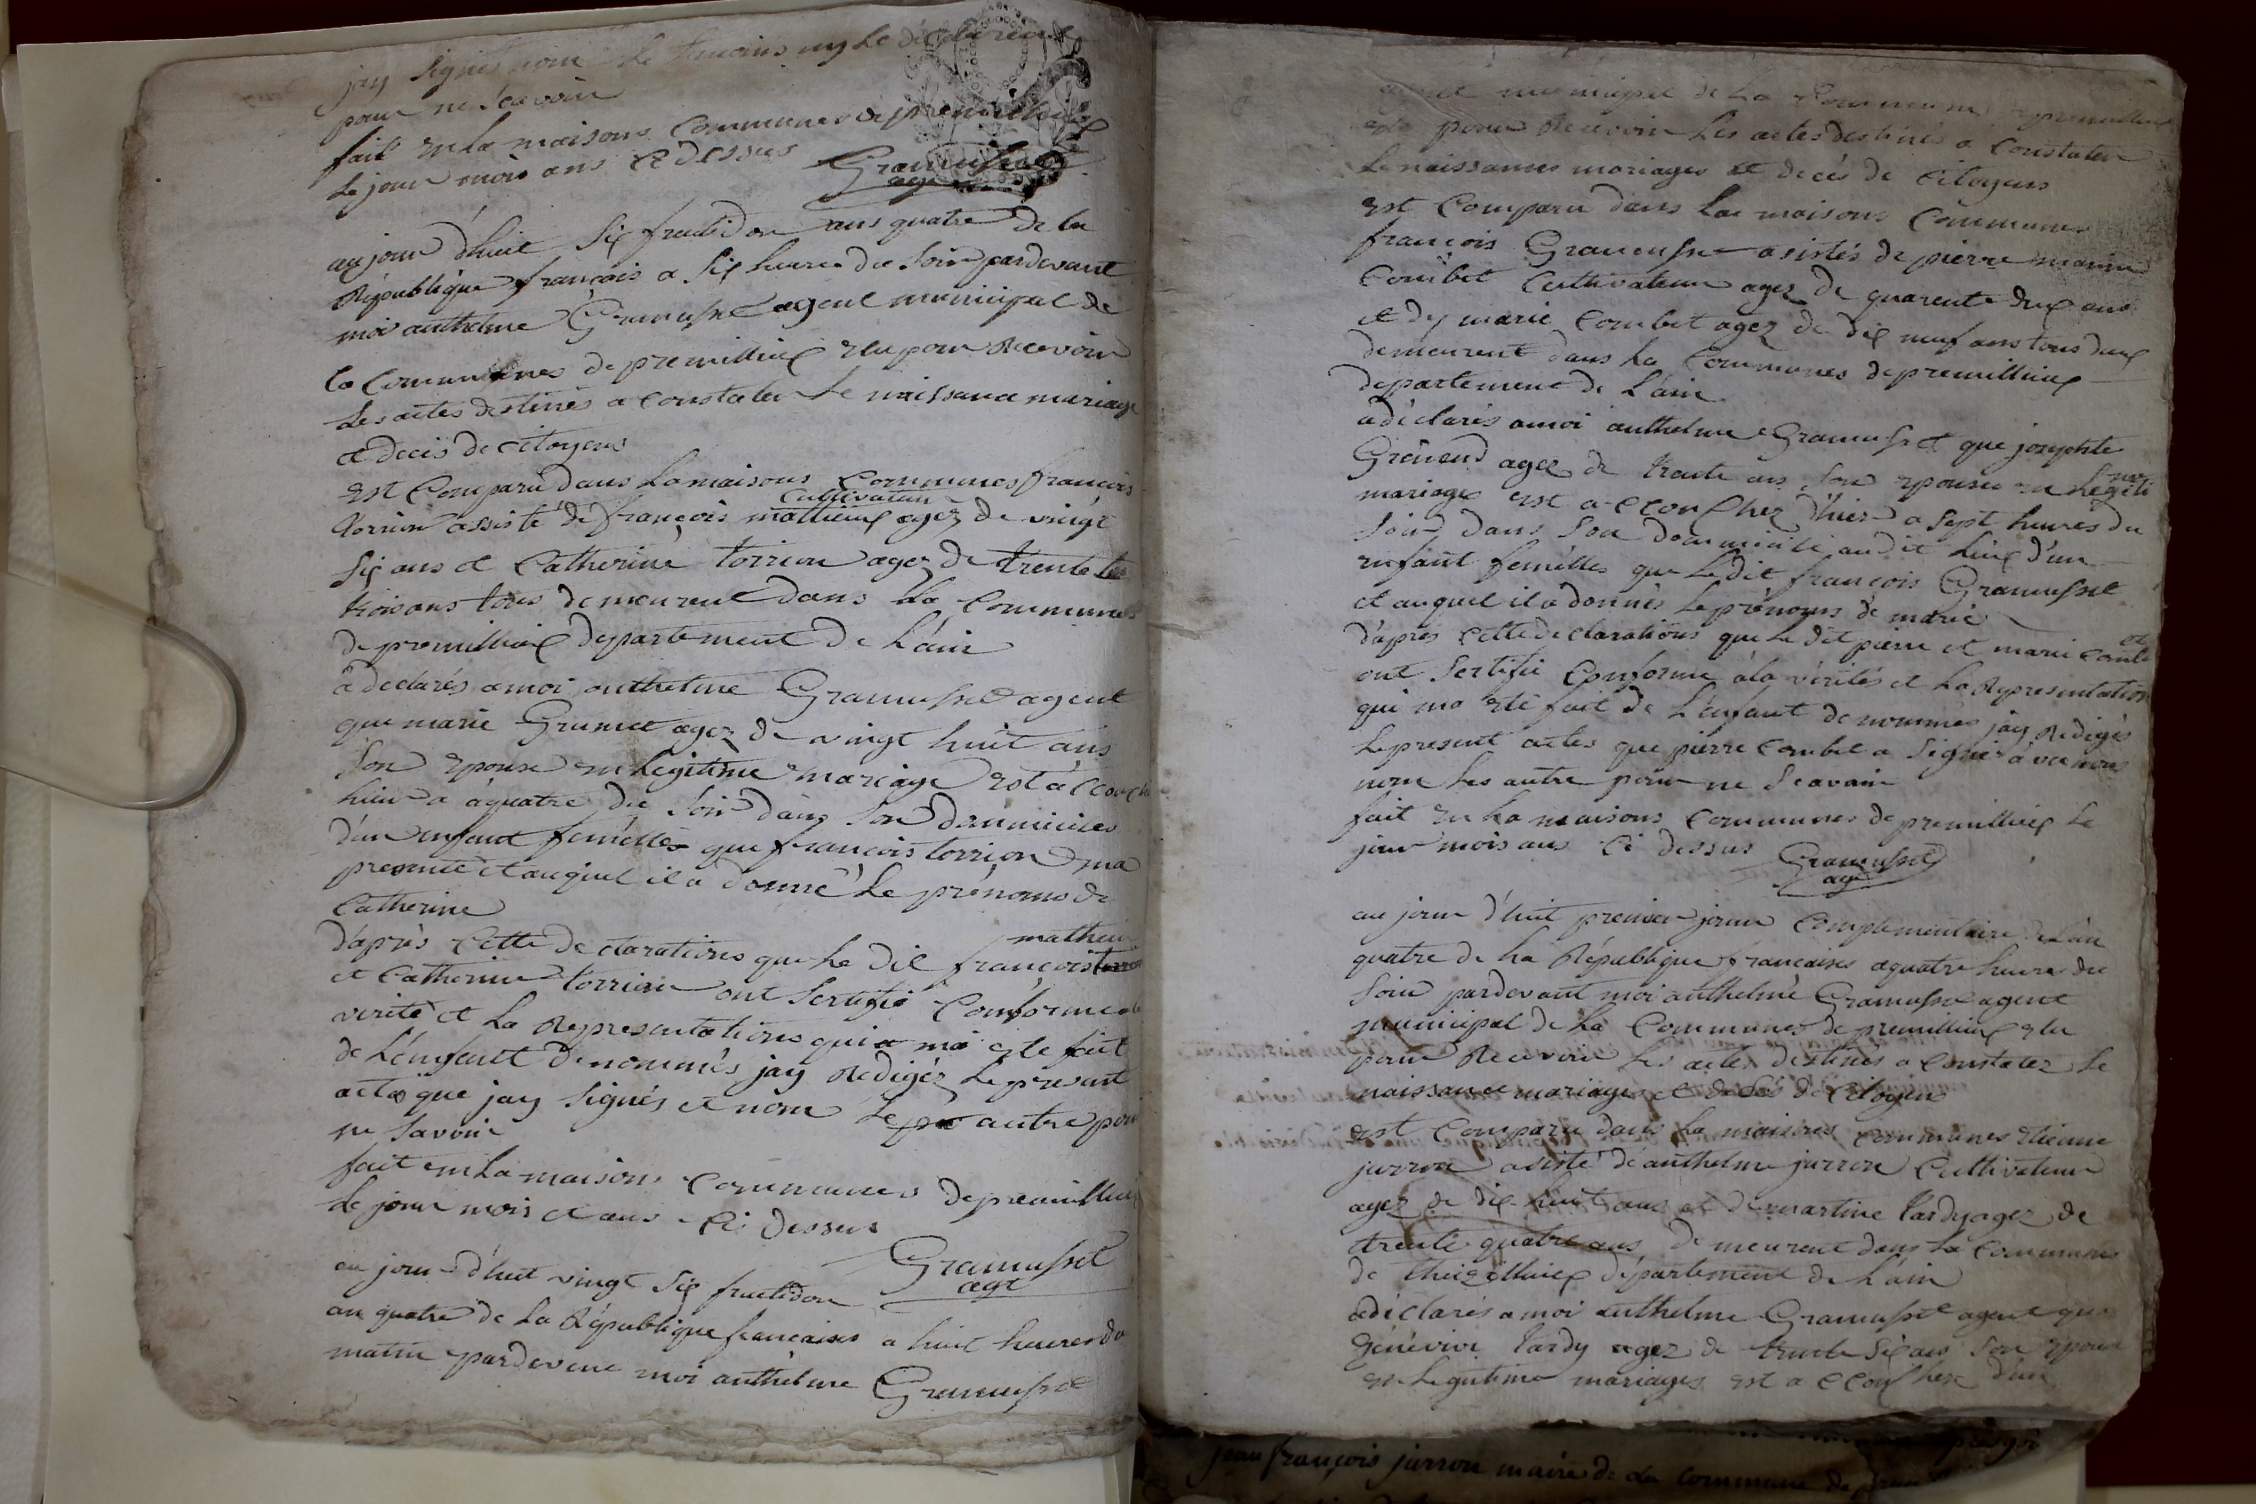 jay signés nom le temoins ny le déclarent
pour ne scavoir
fait en la maisons communes de premillieux
le jour mois ans ce dessus Gramusset
agt
aujour d'huit six fructidor ans quatre de la
République françois a six heure du soir pardevant
moi anthelme Gramusset agent municipal de
la communes de premillieux elu pour Recevoir
les actes destinés a constater le naissance mariage
et decés de citoyens
est comparu dans la maisons communes françois
cultivateur
torrion assisté de françois mattieux agez de vingt
six ans et Catherine torrion agez de trente
trois ans tous demeurent dans la communes
de premillieux departement de l'ain
a declarés a moi anthelme Gramusset agent
que marie Grumet agez de vingt huit ans
son epouse en legitime mariage est accouché
hier a quatre du soir dans son dommiciles
d'un enfant femelles que françois torrion ma
presenté et auquel il a donné le prénoms de
Catherine
mathieu
d'après cette declarations que le dit françois
et Catherine torrion ont sertifié conforme a la
verité et la Representations qui a ma este fait
de l'enfant denommés jay Redigéz le present
acte que jay signés et nom le autre pour
ne savoir
fait en la maisons communes de premillieux
le jour mois et ans ci dessus
Gramusset
agt
au jour d'huit vingt six fructidor
an quatre de la République francaises a huit heures du
matin pardevent moi anthelme Gramusset
agent municipal de la commune de premillieux
elu pour Recevoir les actes destinés a constater
le naissances mariages et decés de citoyens
est comparu dans la maisons communes
françois Gramusset asistés de pierre
combet cultivateur agez de quarente deux ans
et de marie combet agez de dix neuf ans tous deux
demeurent dans la communes de premillieux
departement de l'ain
a déclarés a moi anthelme Gramusset que josephte
Grinand agez de trente ans son epouse en legiti
me
mariage est accouchez d'hier a sept heures du
soir dans son dommicile au dit lieux d'un
enfant femelles que ledit françois Gramusset
et auquel il a donnés le prénoms de marie
d'apres cette declarations que le dit pierre et marie comb
et
ont sertifié conforme a la vérités et la Representation
qui ma esté fait de l'enfant denommés jay Redigés
le present actes que pierre combet a signés avec moi
nom les autre pour ne scavoir
fait en la maisons communes de premillieux le
jour mois ans ci dessus Gramusset
agt
au jour d'huit premier jour complementaire de l'an
quatre de la République francaises a quatre heure du
soir pardevant moi anthelme Gramusset agent
municipal de la communes de premillieux elu
pour Recevoir les actes destinés a constatez le
naissance mariages et decés de citoyen
est comparu dans la maisons communes etienne
jurron asisté de anthelme jurron cultivateur
agez de dix huit ans et de martine tardy agez de
trente quatre ans demeurent dans la commune
de département de l'ain
a déclarés a moi anthelme Gramusset agent que
génévive tardy agez de trente six ans son epouse
en legitime mariages est accouchez d'un
jean françois jurron maire de la commune de